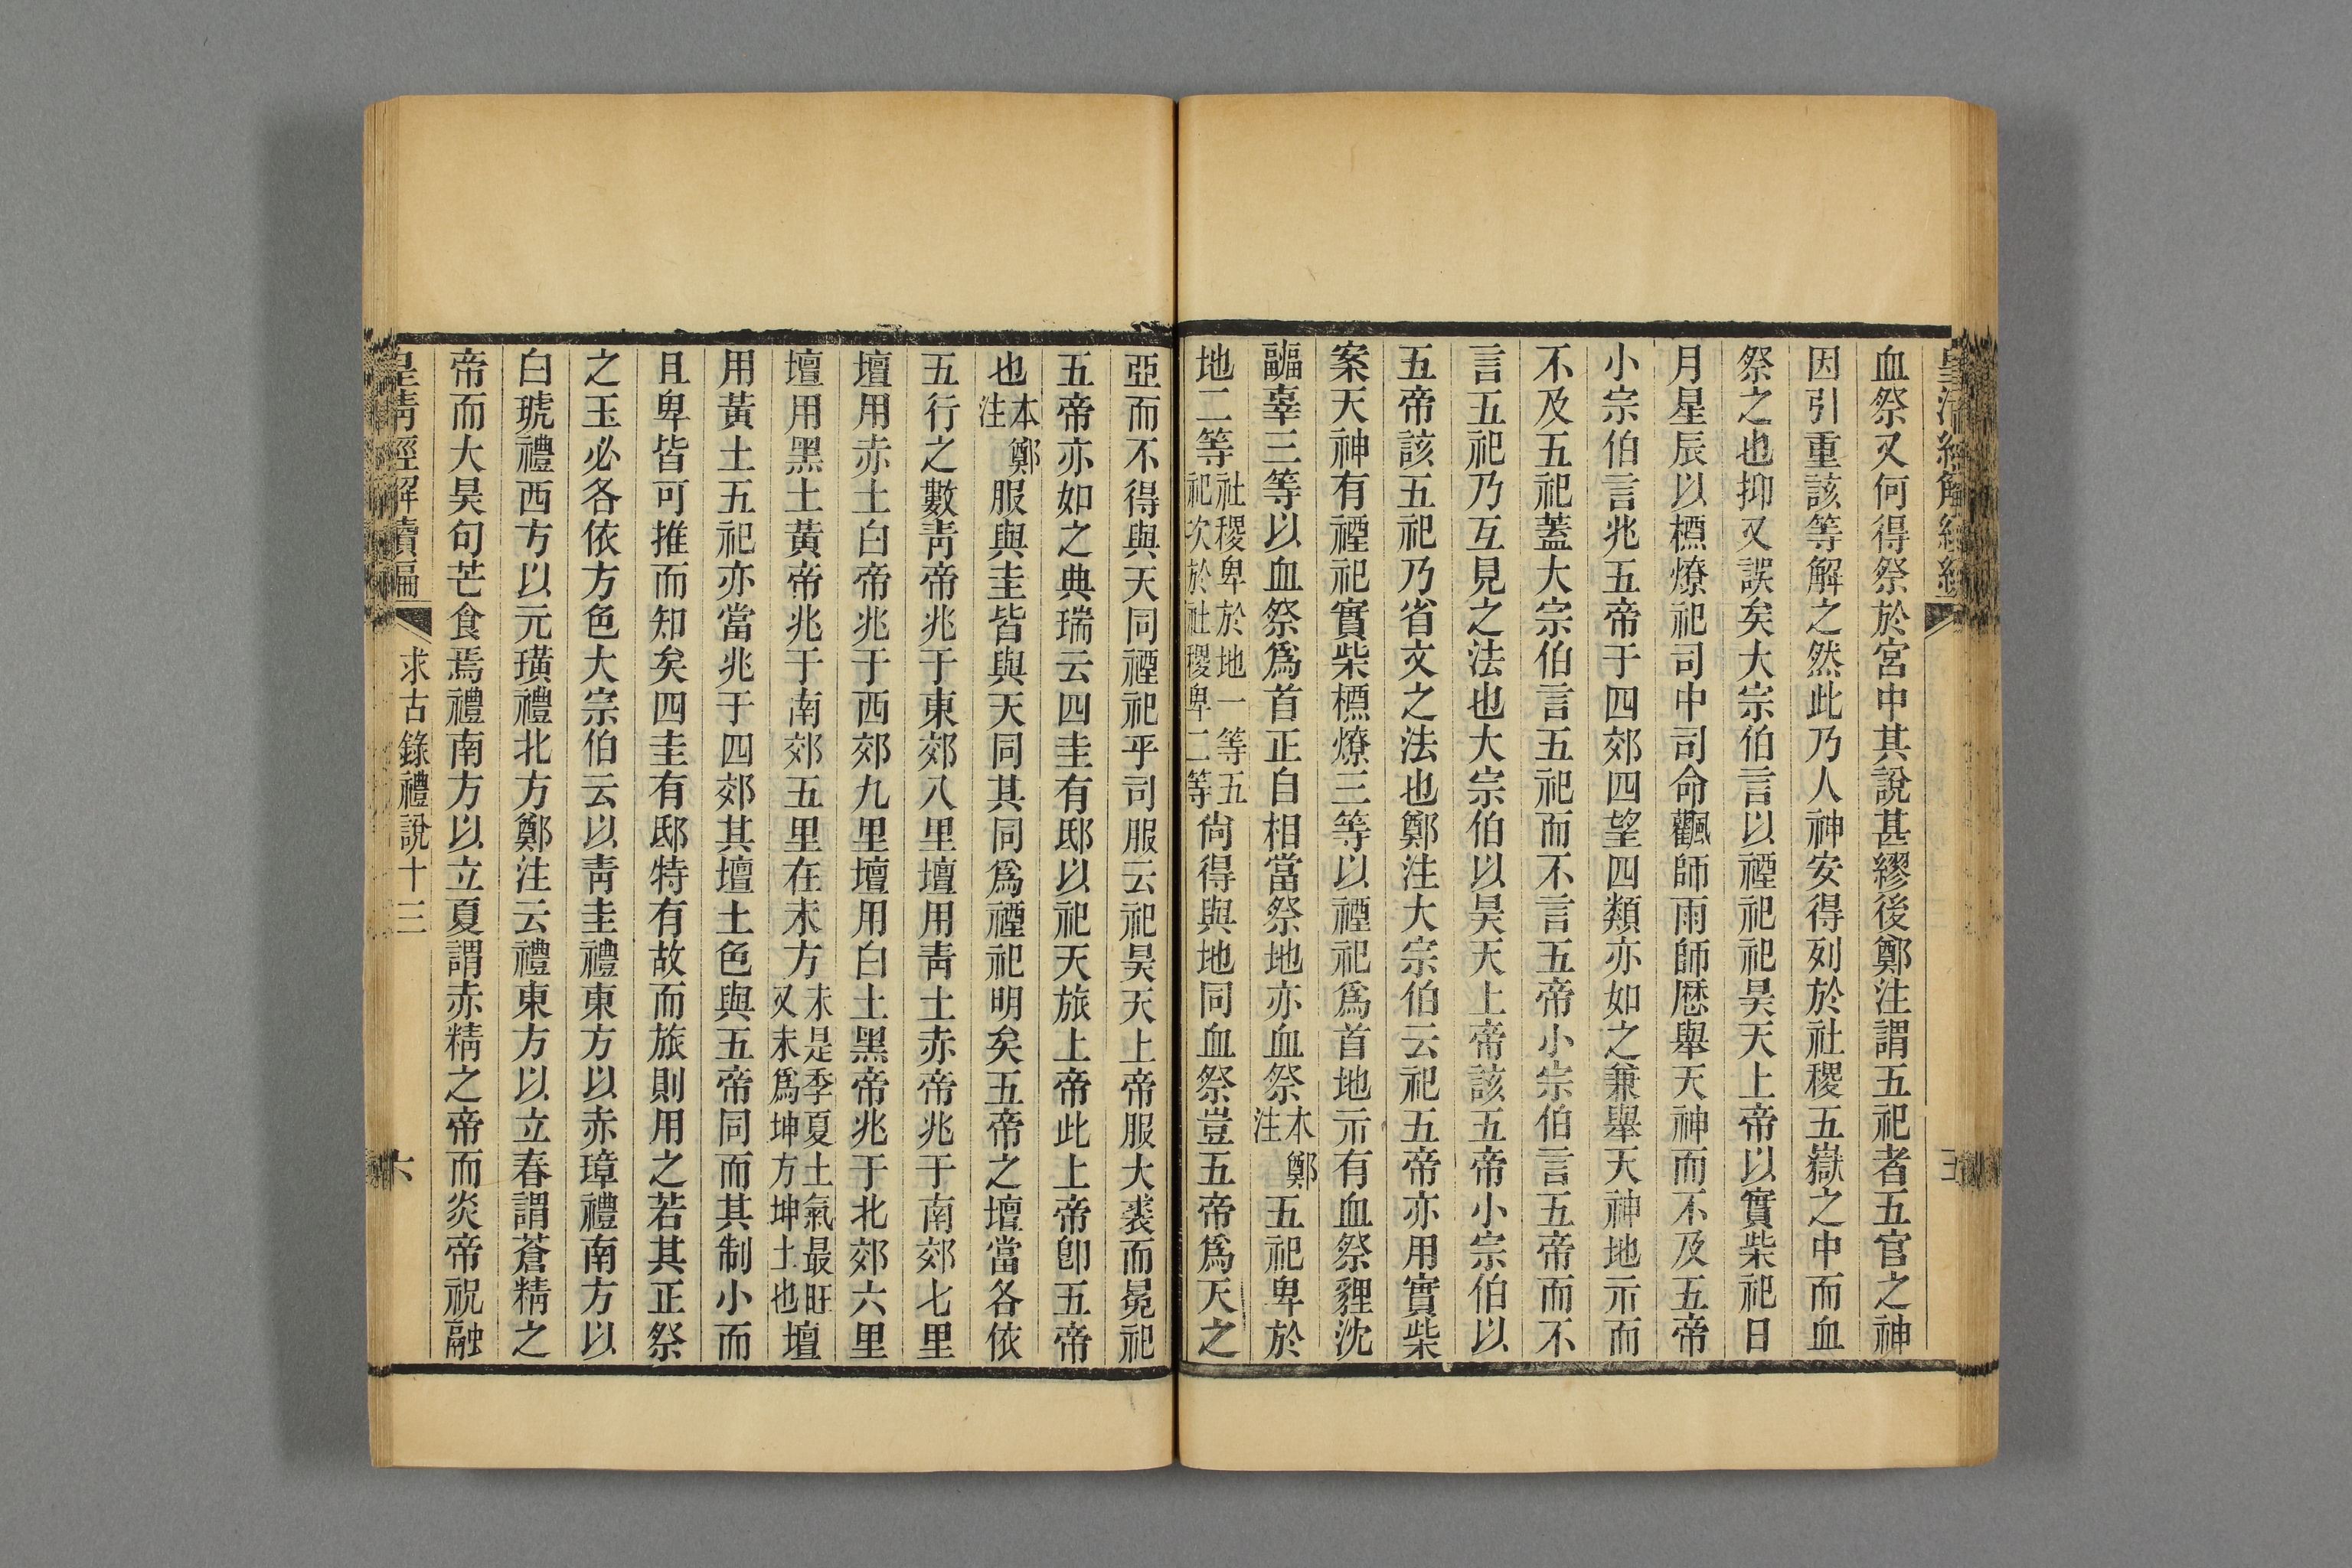 血祭又何得祭於宮中其說甚繆後鄭注謂五祀者五官之神
因引重該等解之然此乃人神安得列於社稷五嶽之中而血
祭之也抑又誤矣大宗伯言以禋祀祀昊天上帝以實柴祀日
月星辰以槱燎祀司中司命飌師雨師厯舉天神而不及五帝
小宗伯言兆五帝于四郊四望四類亦如之兼舉天神地示而
不及五祀蓋大宗伯言五祀而不言五帝小宗伯言五帝而不
言五祀乃互見之法也大宗伯以昊天上帝該五帝小宗伯以
五帝該五祀乃省文之法也鄭注大宗伯云祀五帝亦用實柴
案天神有禋祀實柴槱燎三等以禋祀爲首地示有血祭貍沈
疈辜三等以血祭爲首正自相當祭地亦血祭本鄭注五祀卑於
地二等社稷卑於地一等五祀次於社稷卑二等尙得與地同血祭豈五帝爲天之
亞而不得與天同禋祀乎司服云祀昊天上帝服大裘而冕祀
五帝亦如之典瑞云四圭有邸以祀天旅上帝此上帝卽五帝
也本鄭注服與圭皆與天同其同爲禋祀明矣五帝之壇當各依
五行之數靑帝兆于東郊八里壇用靑土赤帝兆于南郊七里
壇用赤土白帝兆于西郊九里壇用白土黑帝兆于北郊六里
壇用黑土黃帝兆于南郊五里在未方未是季夏土氣最旺又未爲坤方坤土也壇
用黃土五祀亦當兆于四郊其壇土色與五帝同而其制小而
且卑皆可推而知矣四圭有邸特有故而旅則用之若其正祭
之玉必各依方色大宗伯云以靑圭禮東方以赤璋禮南方以
白琥禮西方以元璜禮北方鄭注云禮東方以立春謂蒼精之
帝而大昊句芒食焉禮南方以立夏謂赤精之帝而炎帝祝融
皇清經解續編 求古錄禮說十三 六